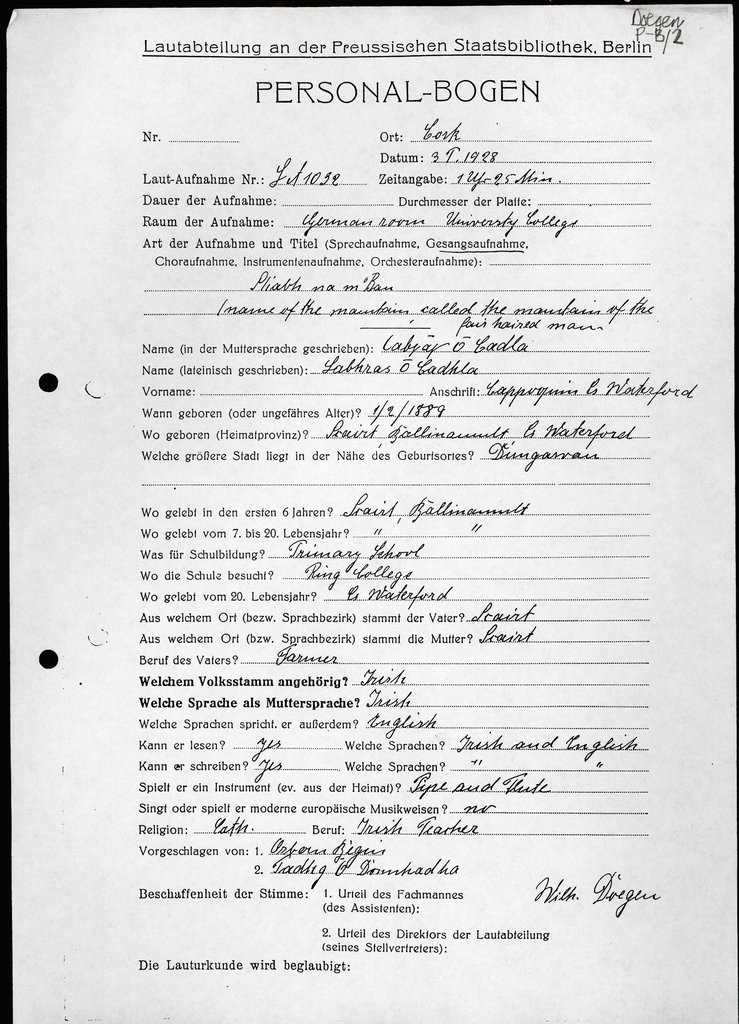 Doegen
P-B/2
Lautabteilung an der Preussischen Staatsbibliothek, Berlin
PERSONAL-BOGEN
Nr. Ort: Cork
Datum: 3 9. 1928
Laut-Aufnahme Nr.: LA 1032 Zeitangabe: 1 Uhr 25 Min.
Dauer der Aufnahme: Durchmesser der Platte:
Raum der Aufnahme: German room University College
Art der Aufnahme und Titel (Sprechaufnahme, Gesangsaufnahme,
Choraufnahme, Instrumentenaufnahme, Orchesteraufnahme):
Sliabh na mBan
(name of the mountain, called the mountain of the
fair haired man
Name (in der Muttersprache geschrieben): Ó Cadla
Name (lateinisch geschrieben): Labhras Ó Cadhla
Vorname: Anschrift: Cappoquin Co Waterford
Wann geboren (oder ungefähres Alter)? 1/2/1889
Wo geboren (Heimatprovinz)? Scairt, Ballinamult Co Waterford
Welche größere Stadt liegt in der Nähe des Geburtsortes? Dungarvan
Wo gelebt in den ersten 6 Jahren? Scairt, Ballinamult
Wo gelebt vom 7. bis 20. Lebensjahr? " "
Was für Schulbildung? Primary School
Wo die Schule besucht? Ring College
Wo gelebt vom 20. Lebensjahr? Co Waterford
Aus welchem Ort (bezw. Sprachbezirk) stammt der Vater? Scairt
Aus welchem Ort (bzw. Sprachbezirk) stammt die Mutter? Scairt
Beruf des Vaters? Farmer
Welchem Volksstamm angehörig? Irish
Welche Sprache als Muttersprache? Irish
Welche Sprachen spricht er außerdem? English
Kann er lesen? Yes Welche Sprachen? Irish and English
Kann er schreiben? Yes Welche Sprachen? " "
Spielt er ein Instrument (ev. aus der Heimat)? Pipe and Flute
Singt oder spielt er moderne europäische Musikweisen? no
Religion: Cath. Beruf: Irish Teacher
Vorgeschlagen von: 1. Osborn Bergin
2. Tadhg Ó Donnchadha
Beschaffenheit der Stimme: 1. Urteil des Fachmannes
(des Assistenten):
Wilh. Doegen
2. Urteil des Direktors der Lautabteilung
(seines Stellvertreters):
Die Lauturkunde wird beglaubigt: